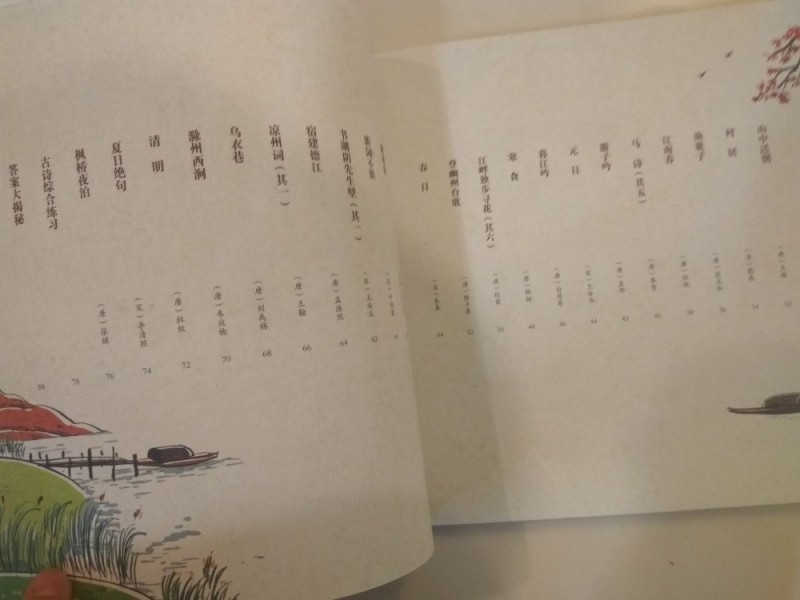 山中送别 （唐）王维 32
村居 （清）高鼎 34
渔歌子 （唐）张志和 36
江南春 （唐）杜牧 38
马诗（其五） （唐）李贺 40
游子吟 （唐）孟郊 42
元日 （宋）王安石 44
暮江吟 （唐）白居易 46
寒食 （唐）韩翃 48
江畔独步寻花（其六） （唐）杜甫 50
登幽州台歌 （唐）陈子昂 52
春日 （宋）朱熹 54
书湖阴先生壁（其一） （宋）王安石 62
宿建德江 （唐）孟浩然 64
凉州词（其一） （唐）王翰 66
乌衣巷 （唐）刘禹锡 68
滁州西涧 （唐）韦应物 70
清明 （唐）杜牧 72
夏日绝句 （宋）李清照 74
枫桥夜泊 （唐）张继 76
古诗综合练习 78
答案大揭秘 88